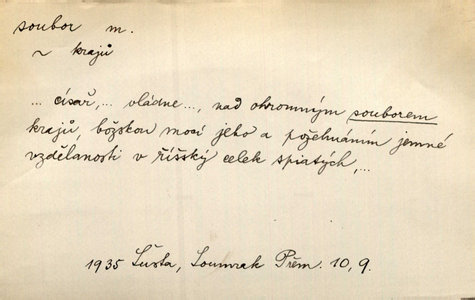 soubor m.
~ krajů
... císař, ... vládne ..., nad ohromným souborem
krajů, božskou mocí jeho a požehnáním jemné
vzdělanosti v říšský celek spiatých, ...
1935 Šusta, Soumrak Přem. 10, 9.